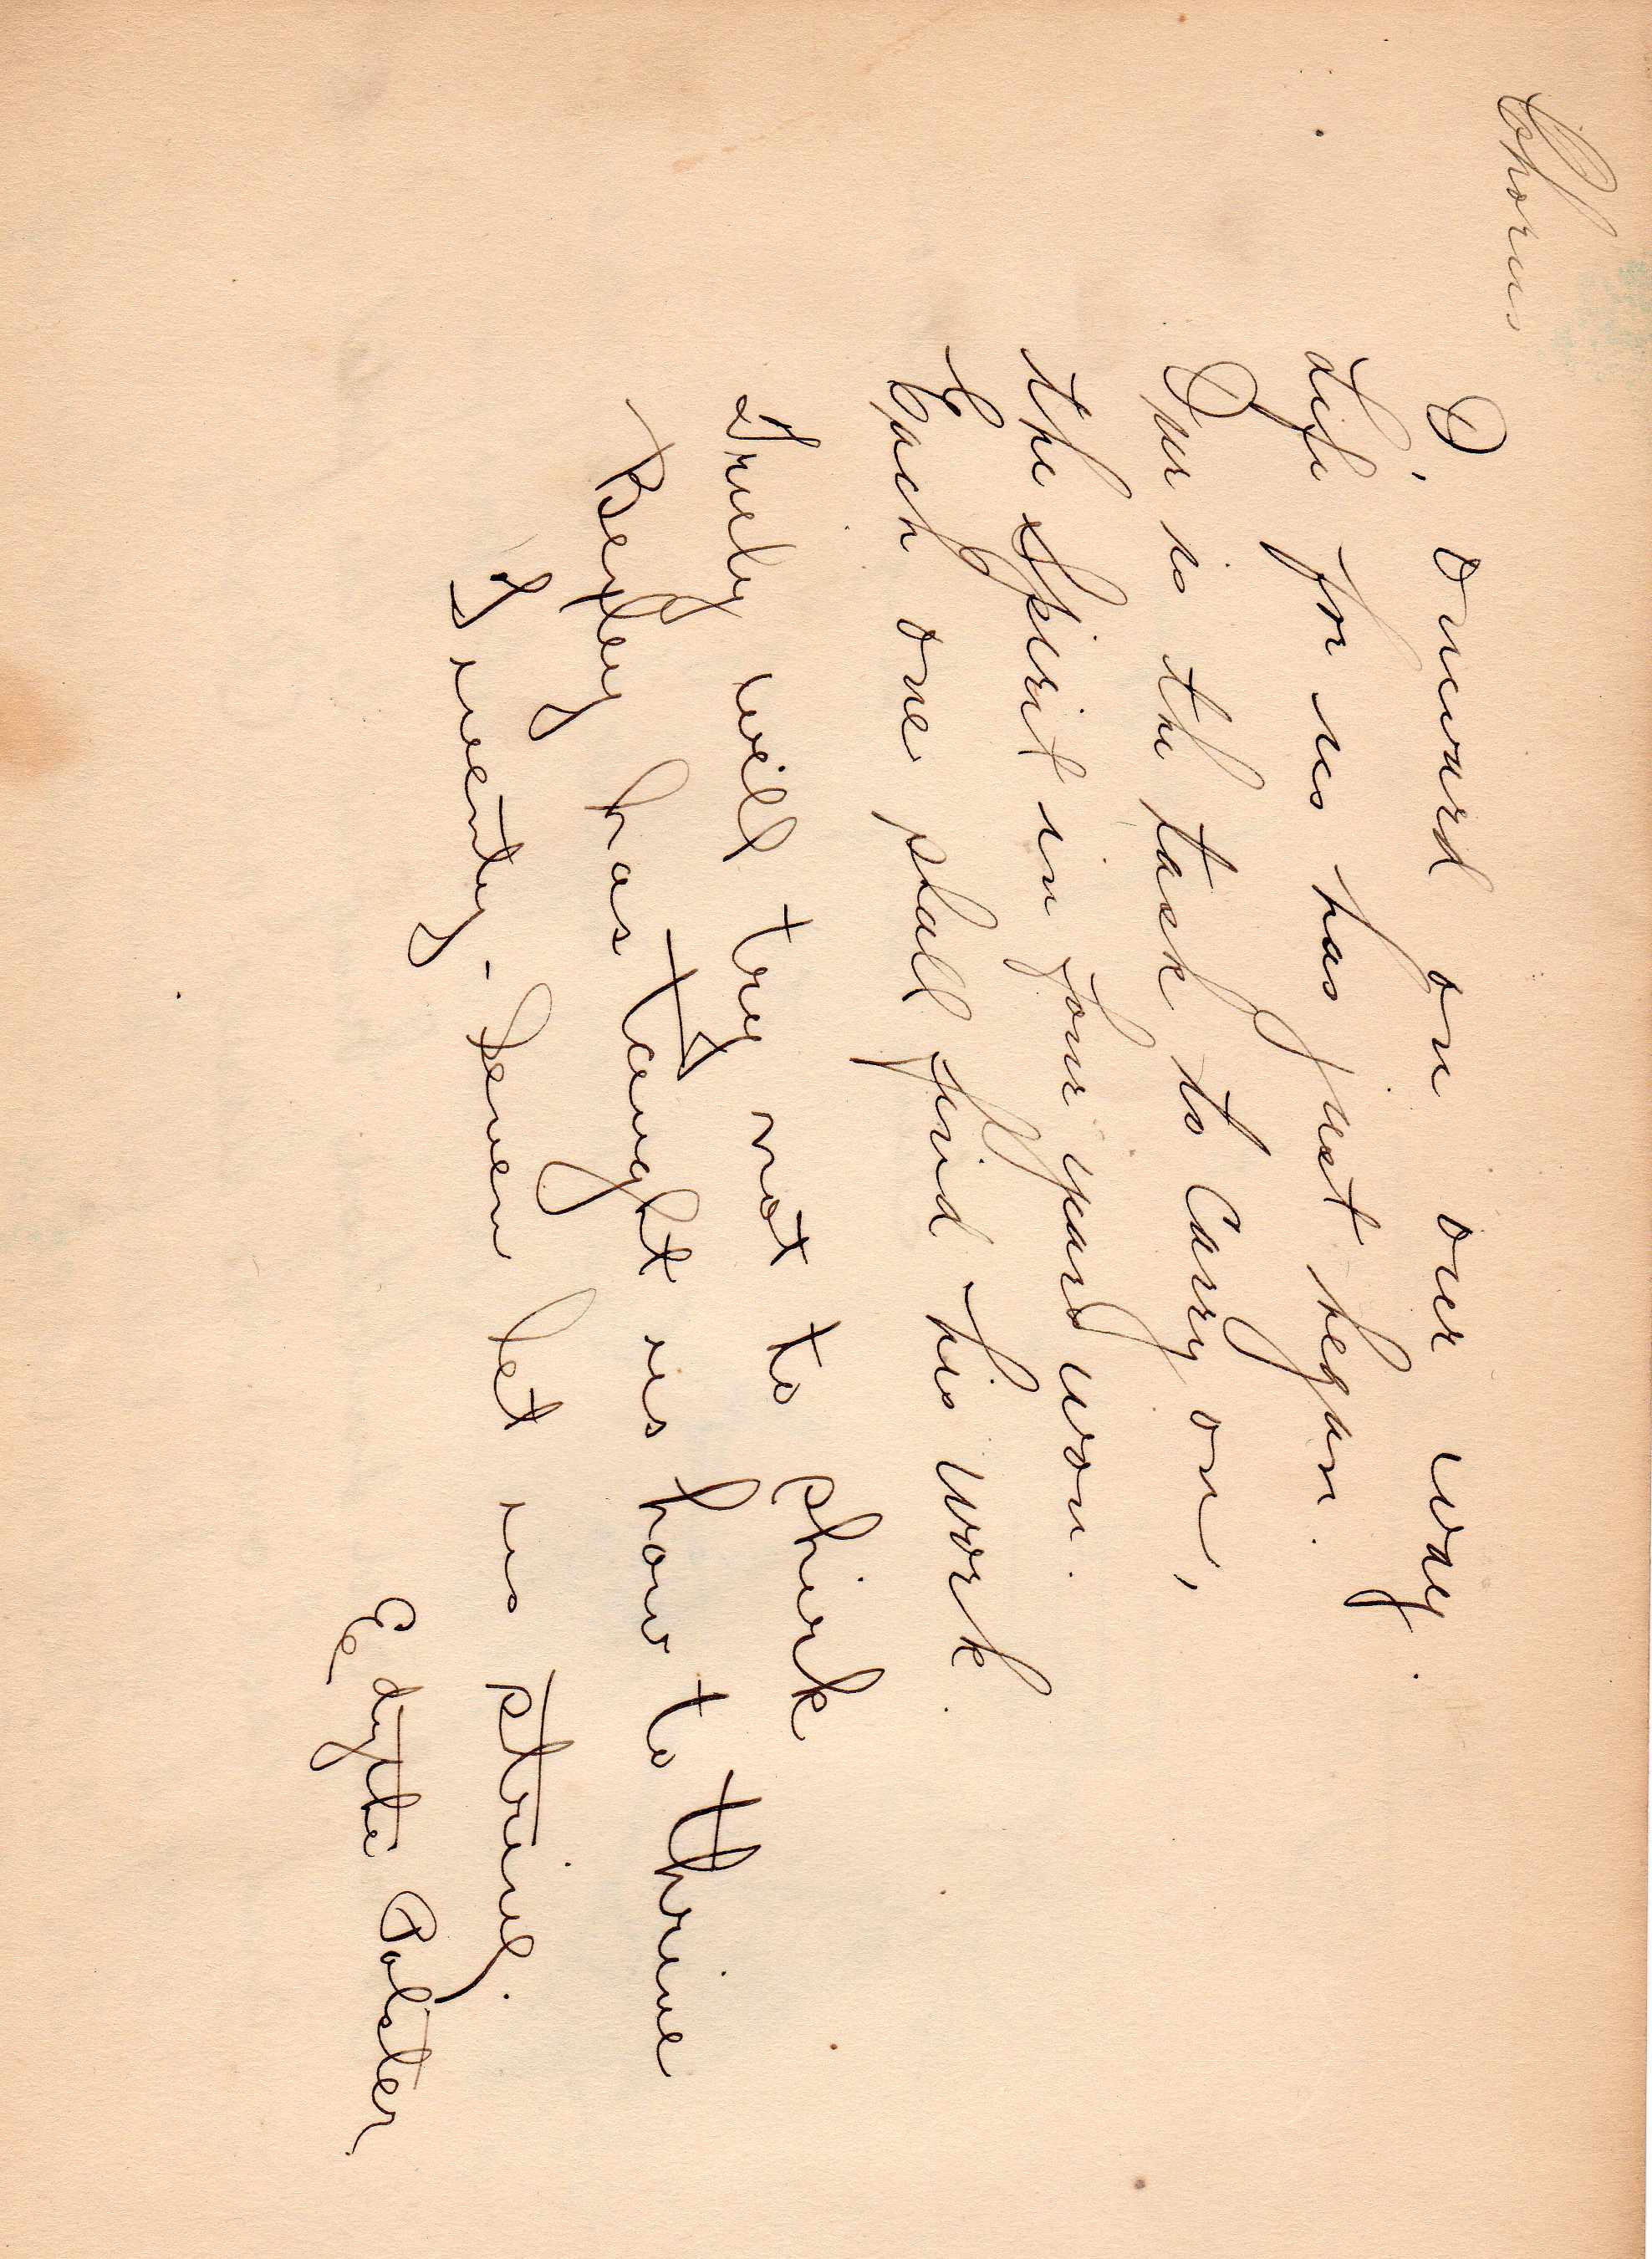 Chorus
O, onward on over way.
Life for us has just begun.
Our is the task to Carry on,
the spirit in four years won.
Each one shall find his work
Truly will try not to shirk
Bexley has taught us how to thrive
Twenty-seven let us strive.
Edythe Polster